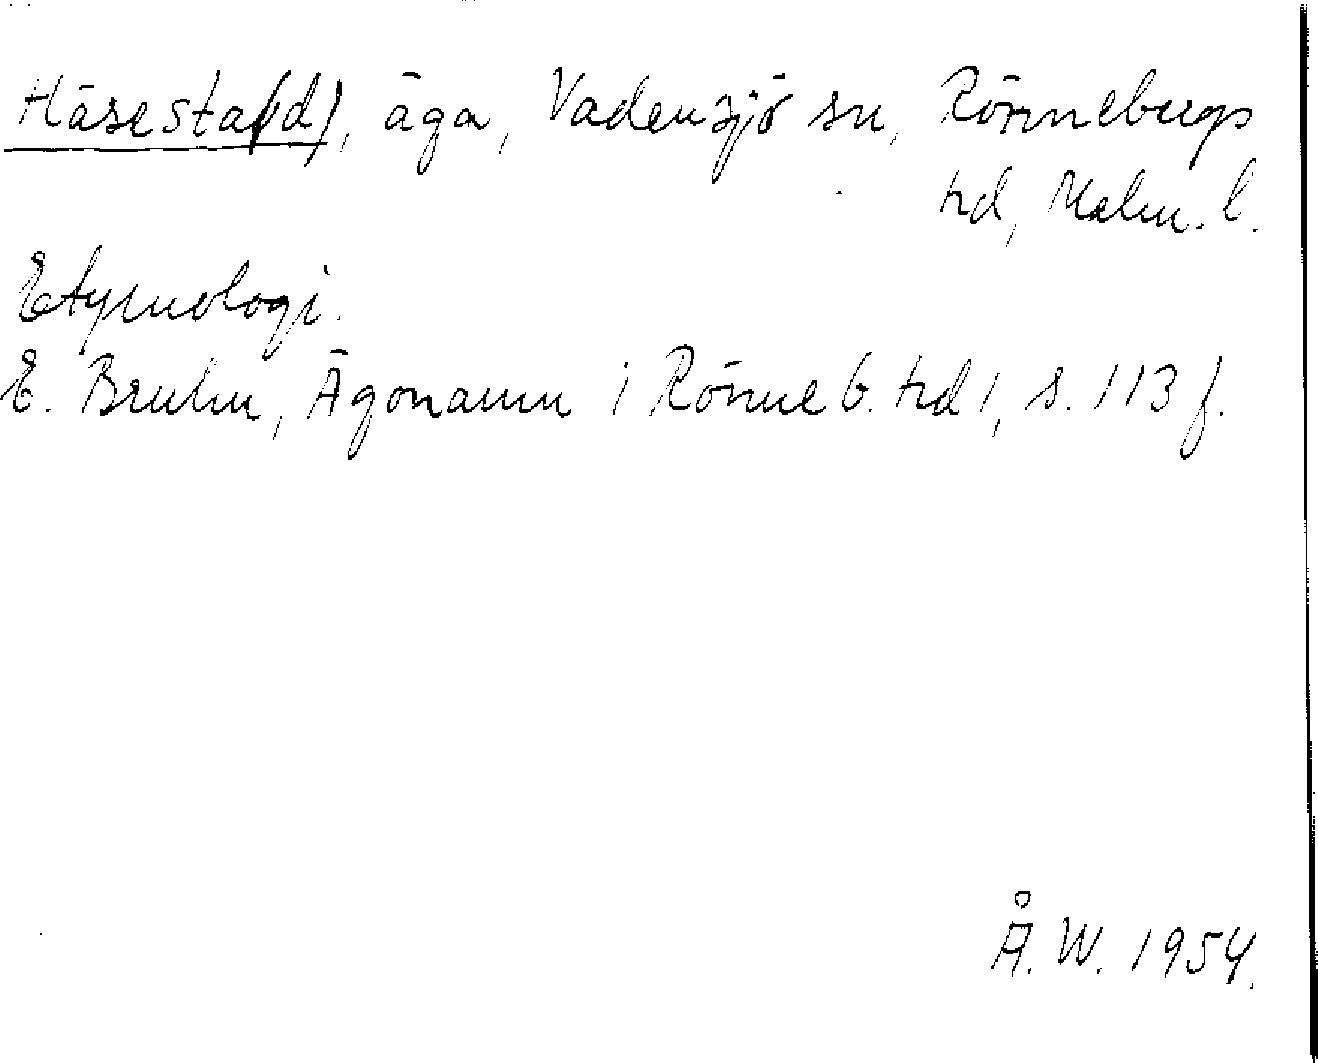 Häsesta(d), äga, Vadensjö sn, Rönnebergs
hd, Malm. l.
Etymologi.
E. Bruhn, Ägonamn i Rönneb. hd 1, s. 113 f.
Å. W. 1954.